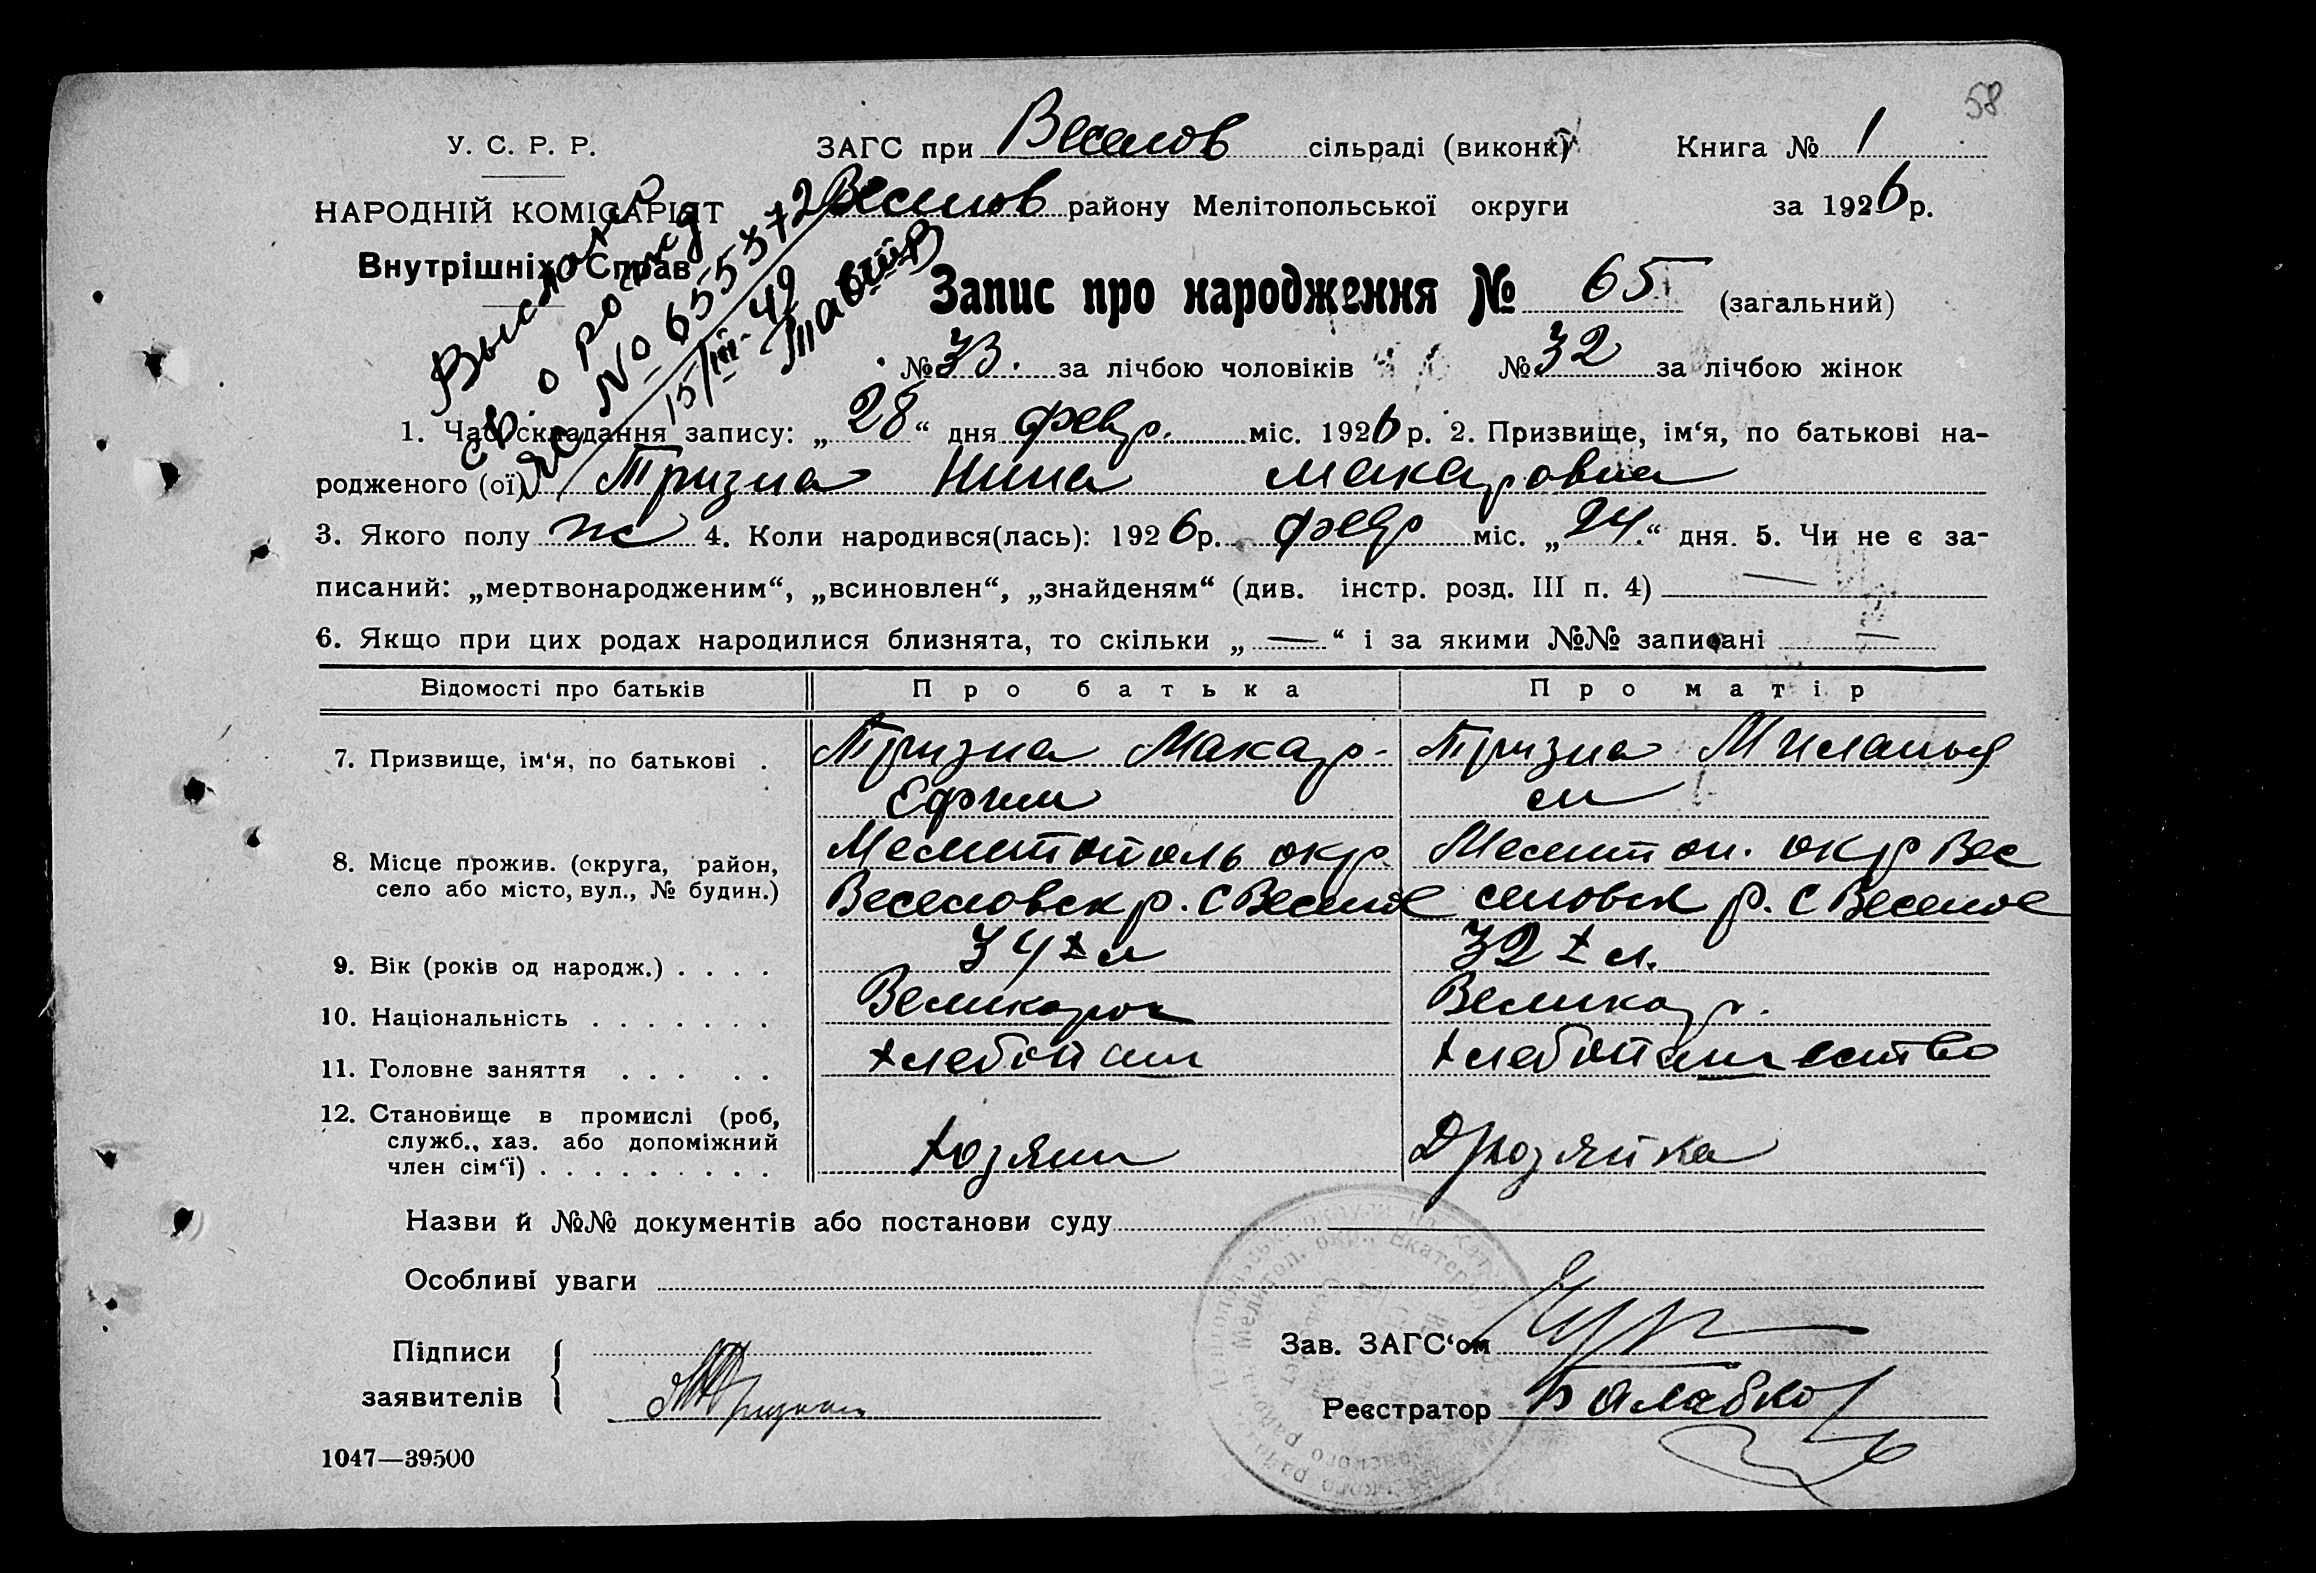 58
У. С. Р. Р.
ЗАГС при Веселов сільраді (виконк)
Книга № 1
НАРОДНІЙ КОМІСАРІЯТ
Веселов району Мелітопольської округи
за 1926 р.
Внутрішніх Справ
Выслано
св. о рожд
ЯО № 6555372
15/III-49
Запис про народження № 65 (загальний)
№ 33. за лічбою чоловіків № 32 за лічбою жінок
1. Час складання запису: „28“ дня февр. міс. 1926 р. 2. Призвище, ім‘я, по батькові на-
родженого (ої) Тризна Нина Макаровна
3. Якого полу ж 4. Коли народився(лась): 1926 р. февр міс. „24“ дня. 5. Чи не є за-
писаний: „мертвонародженим“, „всиновлен“, „знайденям“ (див. інстр. розд. III п. 4) —
6. Якщо при цих родах народилися близнята, то скільки „—“ і за якими №№ записані —
Відомості про батьків Про батька Про матір
7. Призвище, ім‘я, по батькові . Тризна Макар Тризна Миланья
Ефим
8. Місце прожив. (округа, район, Мелитополь окр Мелитоп. окр Вес
село або місто, вул., № будин.) Веселовск р. С Веселое селовск р. С Веселое
9. Вік (років од народж.) . . . . 34 л 32 л.
10. Національність . . . . . . . Великорос Великор.
11. Головне заняття . . . . . хлебопаш хлебопашество
12. Становище в промислі (роб,
служб., хаз. або допоміжний
член сім‘ї) . . . . . . . . . хозяин хозяйка
Назви й №№ документів або постанови суду
Особливі уваги
Підписи
заявителів
МТризна
Зав. ЗАГС‘ом
Реєстратор Балабко
1047—39500